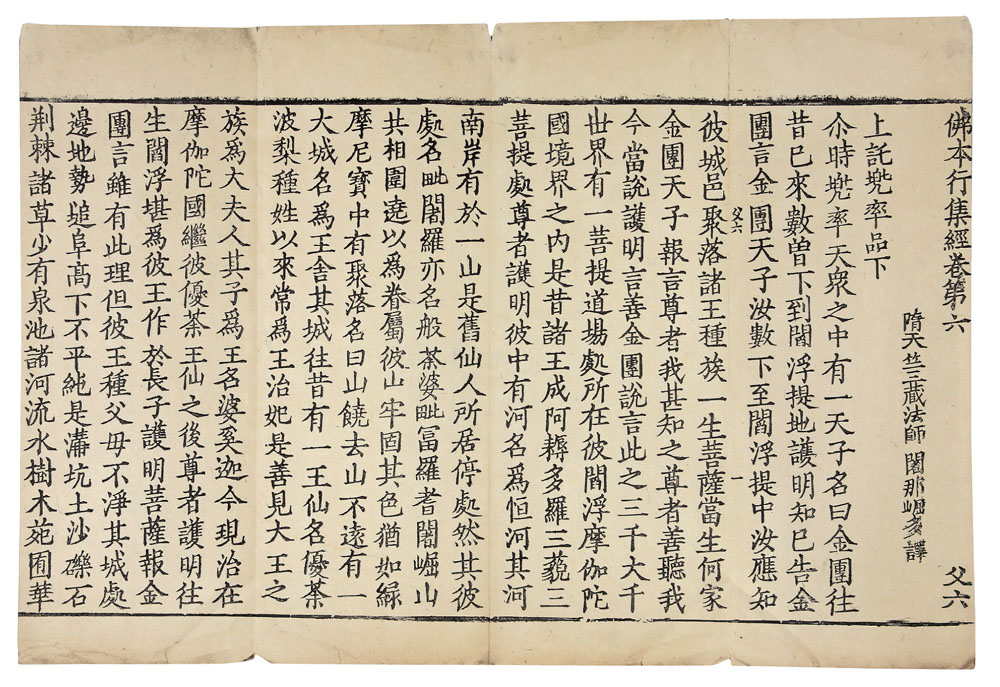 佛本行集經卷第六 父六
隋天竺三藏法師闍那崛多譯
上託兠率品下
尒時兠率天衆之中有一天子名曰金團往
昔已來數曽下到閻浮提地護明知已告金
團言金團天子汝數下至閻浮提中汝應知
父六 一
彼城邑聚落諸王種族一生菩薩當生何家
金團天子報言尊者我甚知之尊者善聽我
今當說護明言善金團說言此之三千大千
世界有一菩提道場處所在彼閻浮摩伽陀
國境界之内是昔諸王成阿耨多羅三藐三
菩提處尊者護明彼中有河名爲恒河其河
南岸有於一山是舊仙人所居停處然其彼
處名毗闍羅亦名般茶婆毗冨羅耆闍崛山
共相圍遶以爲眷屬彼山牢固其色猶如緑
摩尼寶中有聚落名曰山饒去山不遠有一
大城名爲王舎其城往昔有一王仙名優茶
波梨種姓以來常爲王治妃是善見大王之
族爲大夫人其子爲王名婆奚迦今現治在
摩伽陀國繼彼優茶王仙之後尊者護明往
生閻浮堪爲彼王作於長子護明菩薩報金
團言雖有此理但彼王種父母不淨其城處
邊地勢塠阜髙下不平純是溝坑土沙礫石
荆棘諸草少有泉池諸河流水樹木苑囿華